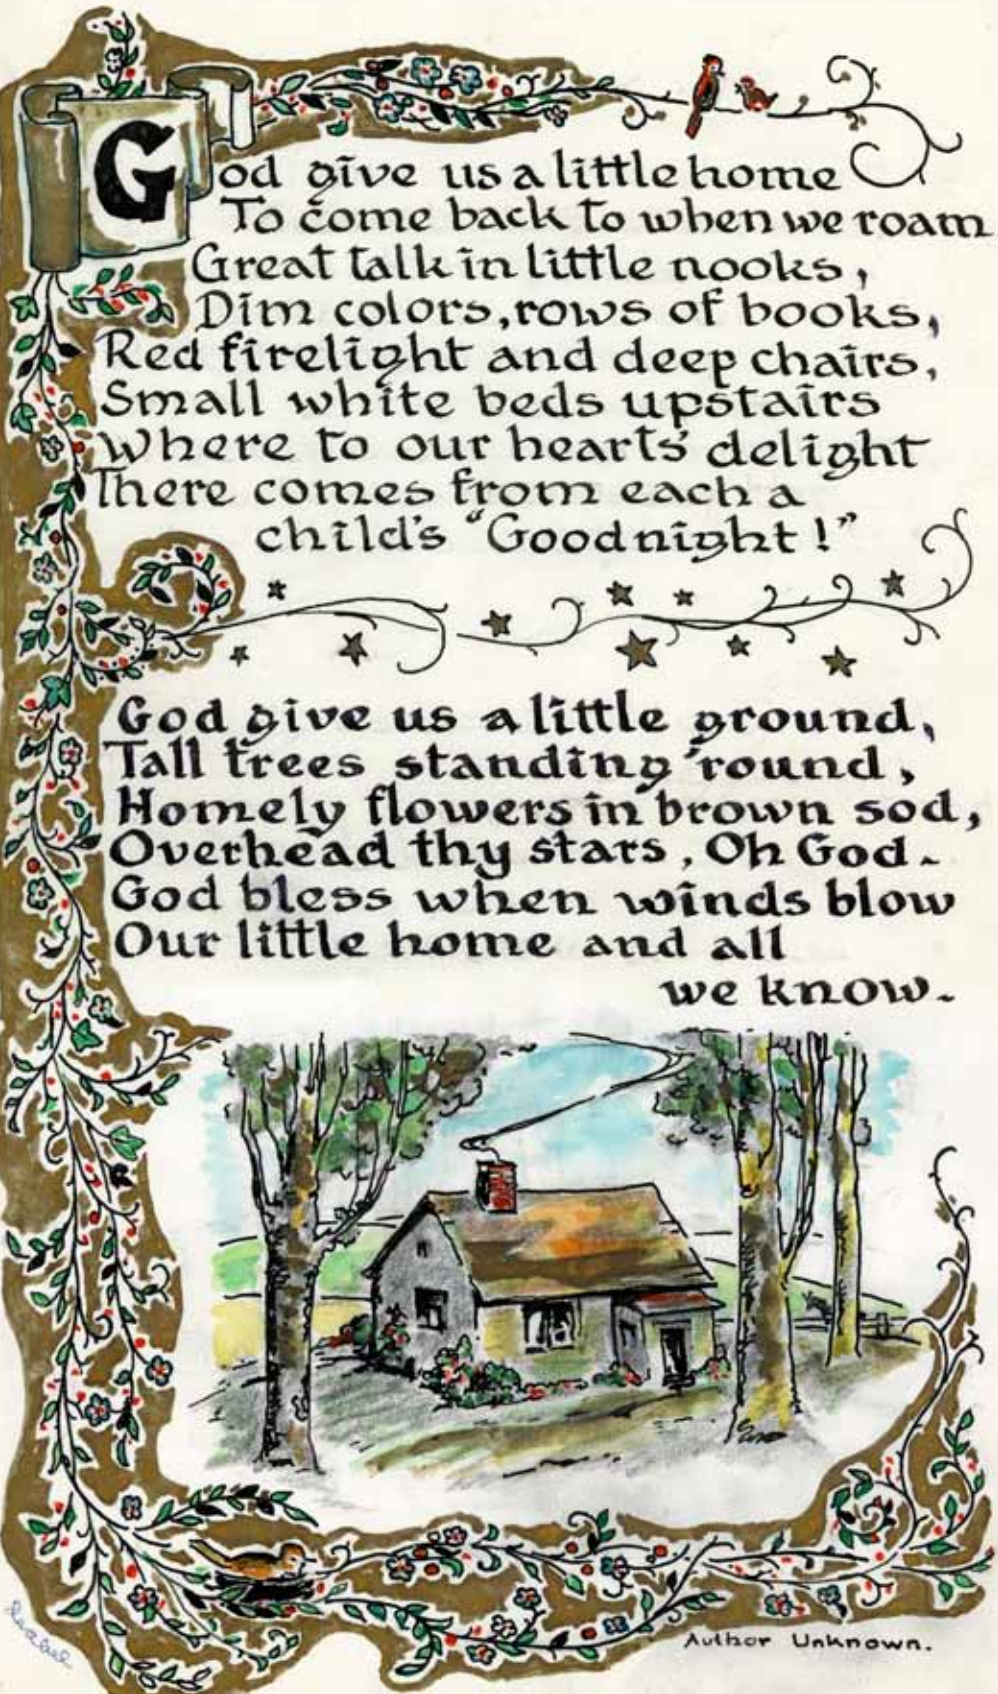 God give us a little home
To come back to when we roam
Great talk in little nooks,
Dim colors, rows of books,
Red firelight and deep chairs,
Small white beds upstairs
Where to our hearts' delight
There comes from each a
child's "Goodnight!"
God give us a little ground,
Tall trees standing 'round,
Homely flowers in brown sod,
Overhead thy stars, Oh God~
God bless when winds blow
Our little home and all
we know~
Author Unknown.